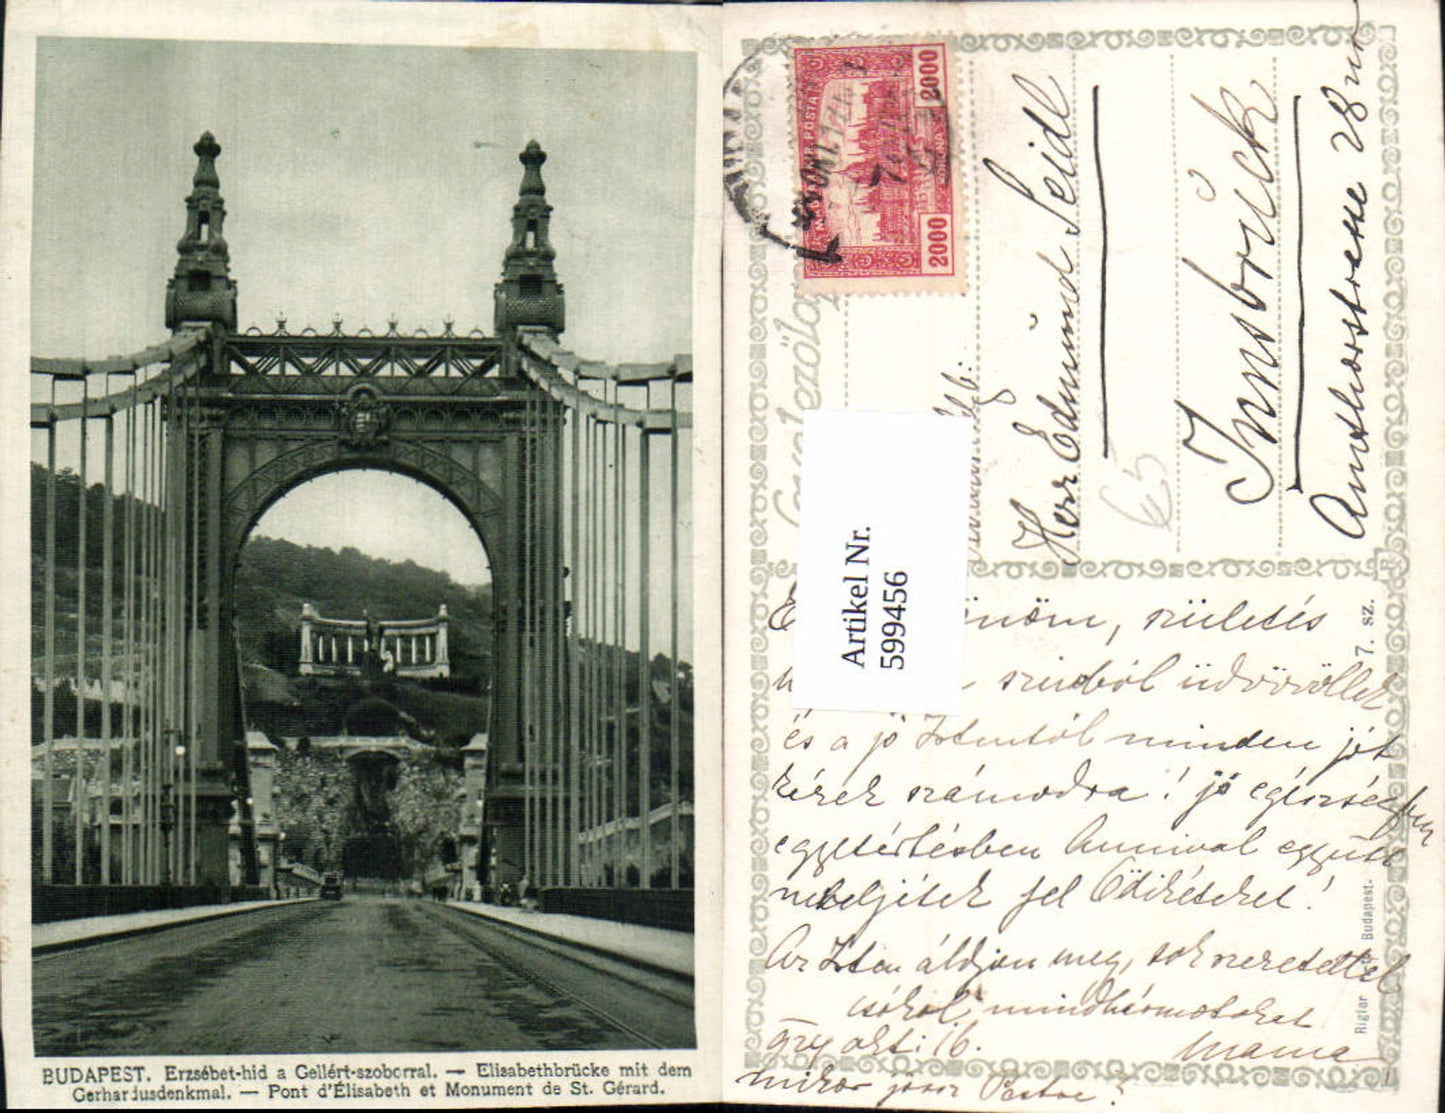 BUDAPEST. Erzsébet-hid a Gellért-szoborral. — Elisabethbrücke mit dem
Gerhardusdenkmal. — Pont d'Élisabeth et Monument de St. Gérard.
MAGYAR KIR. POSTA
2000
2000
KORONA
Levelezőlap
Herr Edmund Seidl
Innsbrück
Amthorstrasse 28
Artikel Nr.
599456
születés
szivből üdvözöllek
és a jó Istentől minden jót
kérek számodra! jó egészségben
egyetértésben Annival együtt
neveljétek fel Ödikéteket!
Az Isten áldjon meg, sok szeretettel
csókol mindhármotokat
okt: 16. Mama
mikor jösz Pestre?
7. sz.
Rigler Budapest